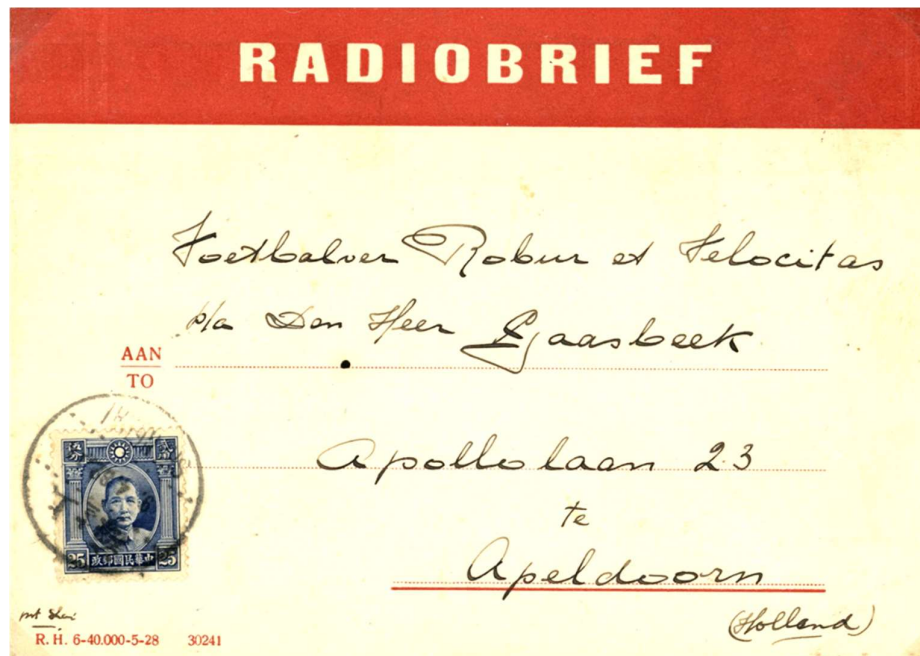 RADIOBRIEF
Voetbalver Robur et Velocitas
p/a Den Heer Gaasbeek
AAN
TO
Apollolaan 23
te
Apeldoorn
(Holland)
25 政郵國民華中 25
R. H. 6-40.000-5-28 30241